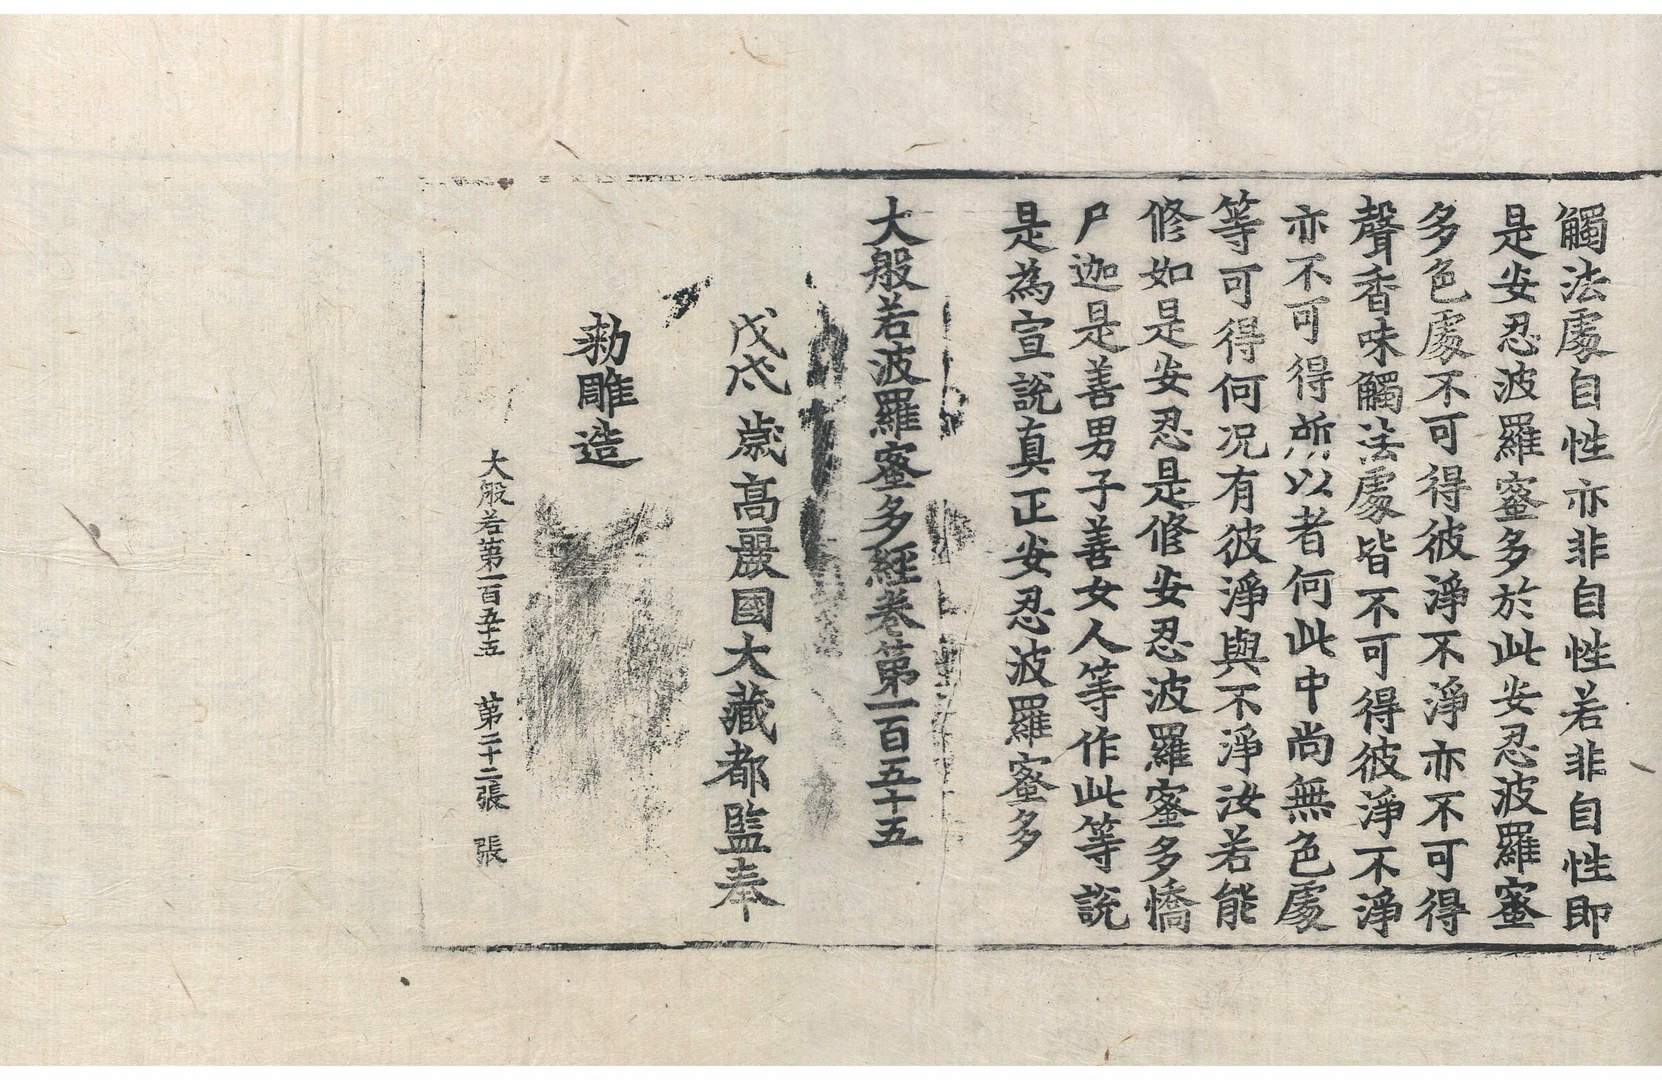 觸法處自性亦非自性若非自性即
是安忍波羅蜜多於此安忍波羅蜜
多色處不可得彼淨不淨亦不可得
聲香味觸法處皆不可得彼淨不淨
亦不可得所以者何此中尚無色處
等可得何况有彼淨與不淨汝若能
修如是安忍是修安忍波羅蜜多憍
尸迦是善男子善女人等作此等說
是為宣說真正安忍波羅蜜多
大般若波羅蜜多經卷第一百五十五
戊戌歲高麗國大藏都監奉
勅雕造
大般若第一百五十五 第二十二張 張